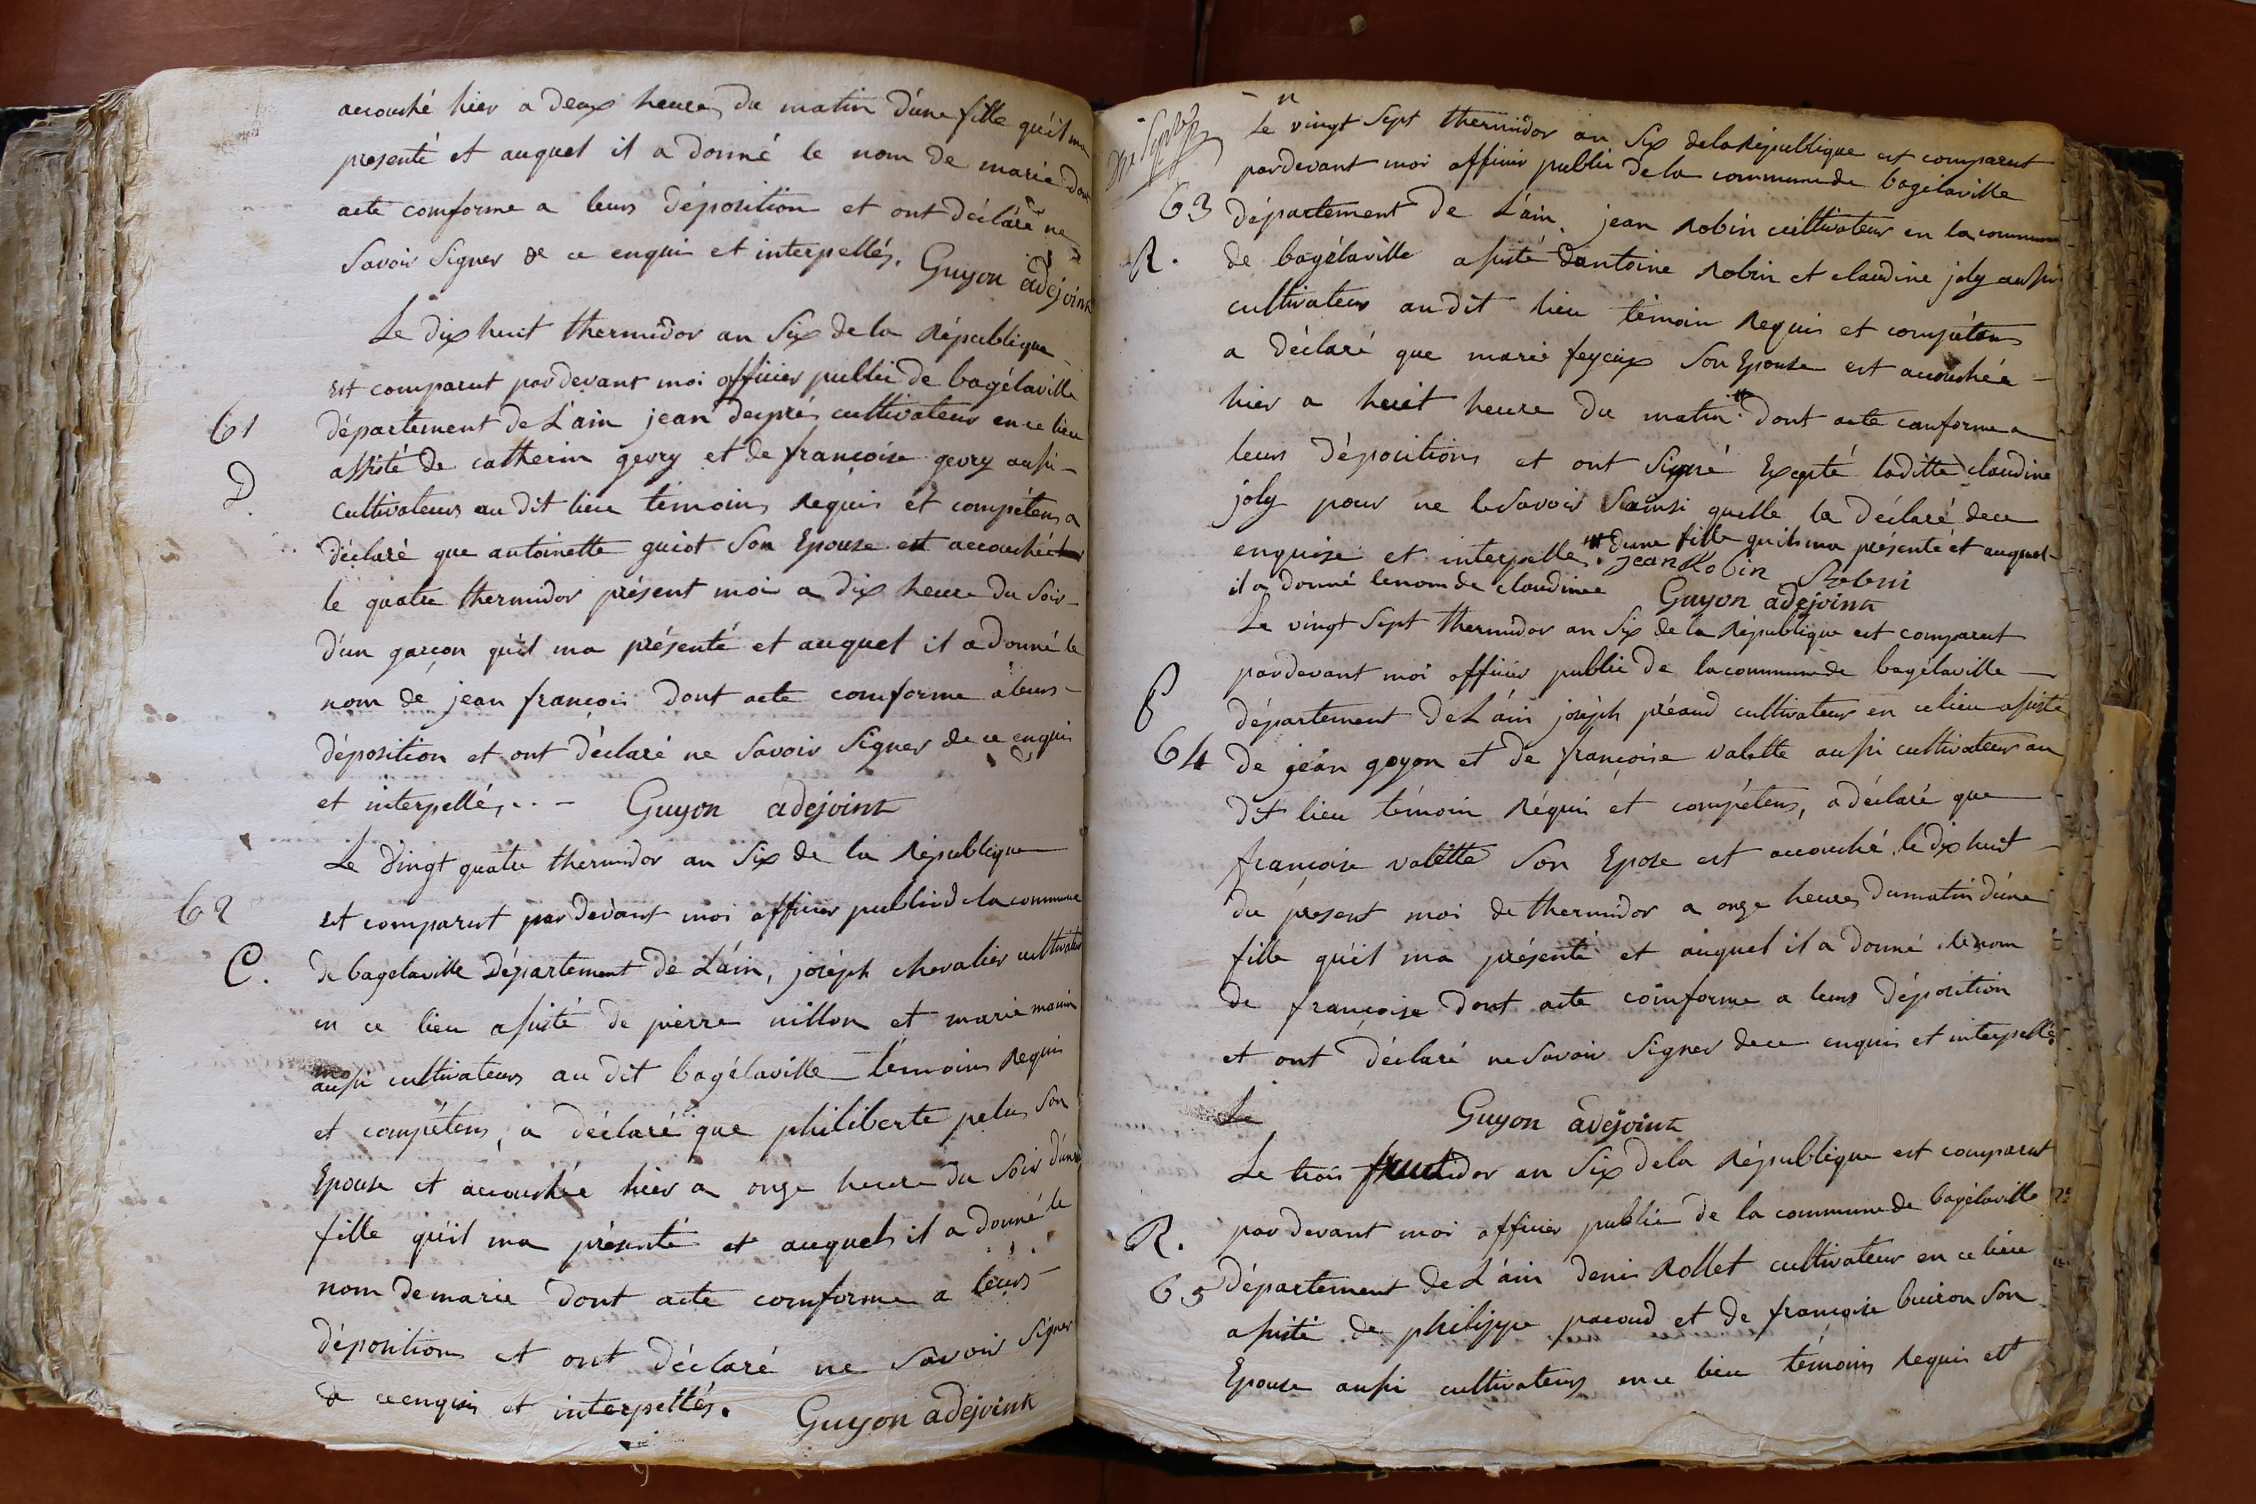 accouché hier a deux heures du matin d'une fille qu'il ma
presenté et auquel il a donné le nom de marie dont
acte comforme a leurs déposition et ont déclaré ne
savoir signer de ce enquis et interpellés. Guyon adejoint
Le dix huit thermidor an six de la République
est comparut par devant moi officier public de bagélaville
61
département de L'ain jean dupré cultivateur en ce lieu
assisté de catherin gevry et de françoise gevry aussi
D.
cultivateurs au dit lieu témoins requis et compétens a
déclaré que antoinette guiot son Epouse est accouchée
le quatre thermidor présent moi a dix heure du soir
d'un garçon qu'il ma présenté et auquel il a donné le
nom de jean françois dont acte comforme a leurs
déposition et ont déclaré ne savoir signer de ce enquis
et interpellés. Guyon adejoint
Le vingt quatre thermidor an six de la République
62
est comparut par devant moi officier public de la commune
C.
de bagelaville Département de L'ain, joséph chevalier cultivateur
en ce lieu assisté de pierre nillon et marie
aussi cultivateurs au dit bagélaville témoins requis
et compétens, a déclaré que philiberte pelus son
Epouse et accouchée hier a onze heure du soir d'une
fille qu'il ma présenté et auquel il a donné le
nom de marie dont acte comforme a leurs
déposition et ont déclaré ne savoir signer
de ce enquis et interpellés. Guyon adejoint
Le vingt sept thermidor an six de la République est comparut
par devant moi officier public de la commune de bagélaville
63
département de L'ain, jean Robin cultivateur en la commune
R.
de bagélaville assisté d'antoine Robin et claudine joly aussi
cultivateurs au dit lieu témoin requis et compétens
a déclaré que marie feyeux son Epouse est accouchée
hier a huit heure du matin dont acte conforme a
leurs dépositions et ont signé Excepté laditte claudine
joly pour ne le savoir ainsi quelle la déclaré de ce
enquise et interpellé. d'une fille qu'il ma présenté et auquel
il a donné le nom de claudine jean Robin Robin
Guyon adejoint
Le vingt sept thermidor an six de la République est comparut
par devant moi officier public de la commune de bagélaville
P
département de L'ain joséph préaud cultivateur en ce lieu assisté
64
de jean goyon et de françoise valette aussi cultivateur au
dit lieu témoin réquis et compétens, a déclaré que
françoise valette son Epose est accouché le dix huit
du present moi de thermidor a onze heures du matin d'une
fille qu'il ma présenté et auquel il a donné le nom
de françoise dont acte comforme a leurs déposition
et ont déclaré ne savoir signer de ce enquis et interpellés
Le
Guyon adejoint
Le trois fructidor an six de la République est comparut
par devant moi officier public de la commune de bagélaville
R.
65
département de L'ain denis Rollet cultivateur en ce lieu
assisté de philippe pacoud et de françoise buiron son
Epouse aussi cultivateurs en ce lieu témoins requis et